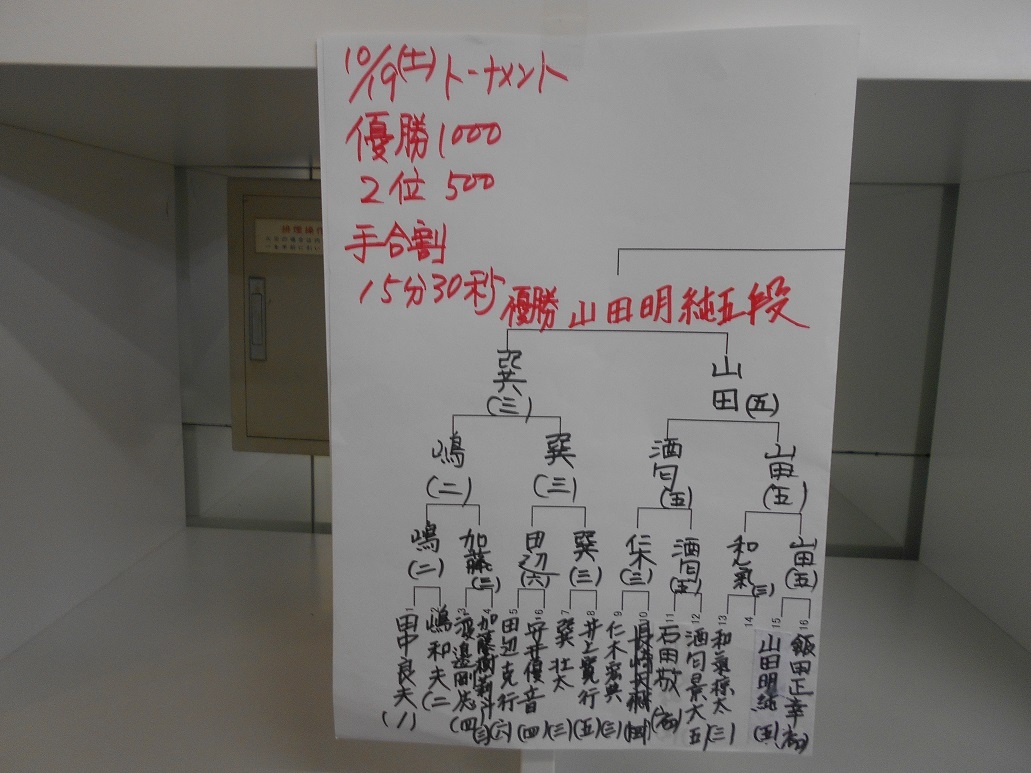 10/19(土)トーナメント
優勝1000
2位 500
手合割
15分30秒
優勝 山田明純五段
巽(三)
山田(五)
嶋(二)
巽(三)
酒匂(五)
山田(五)
嶋(二)
加藤(三)
田辺(六)
巽(三)
仁木(三)
酒匂(五)
和氣(三)
山田(五)
1 2 3 4 5 6 7 8 9 10 11 12 13 14 15 16
田中良夫(1)
嶋和夫(二
渡邉剛志(四
加藤樹莉斗(三)
田辺克行(六)
安井優音(四)
巽壮太(三)
井上寛行(五)
仁木宏典(三)
(四)
石田敬(初)
酒匂景大(五)
和氣稼太(三)
山田明純(五)
飯田正幸(初)